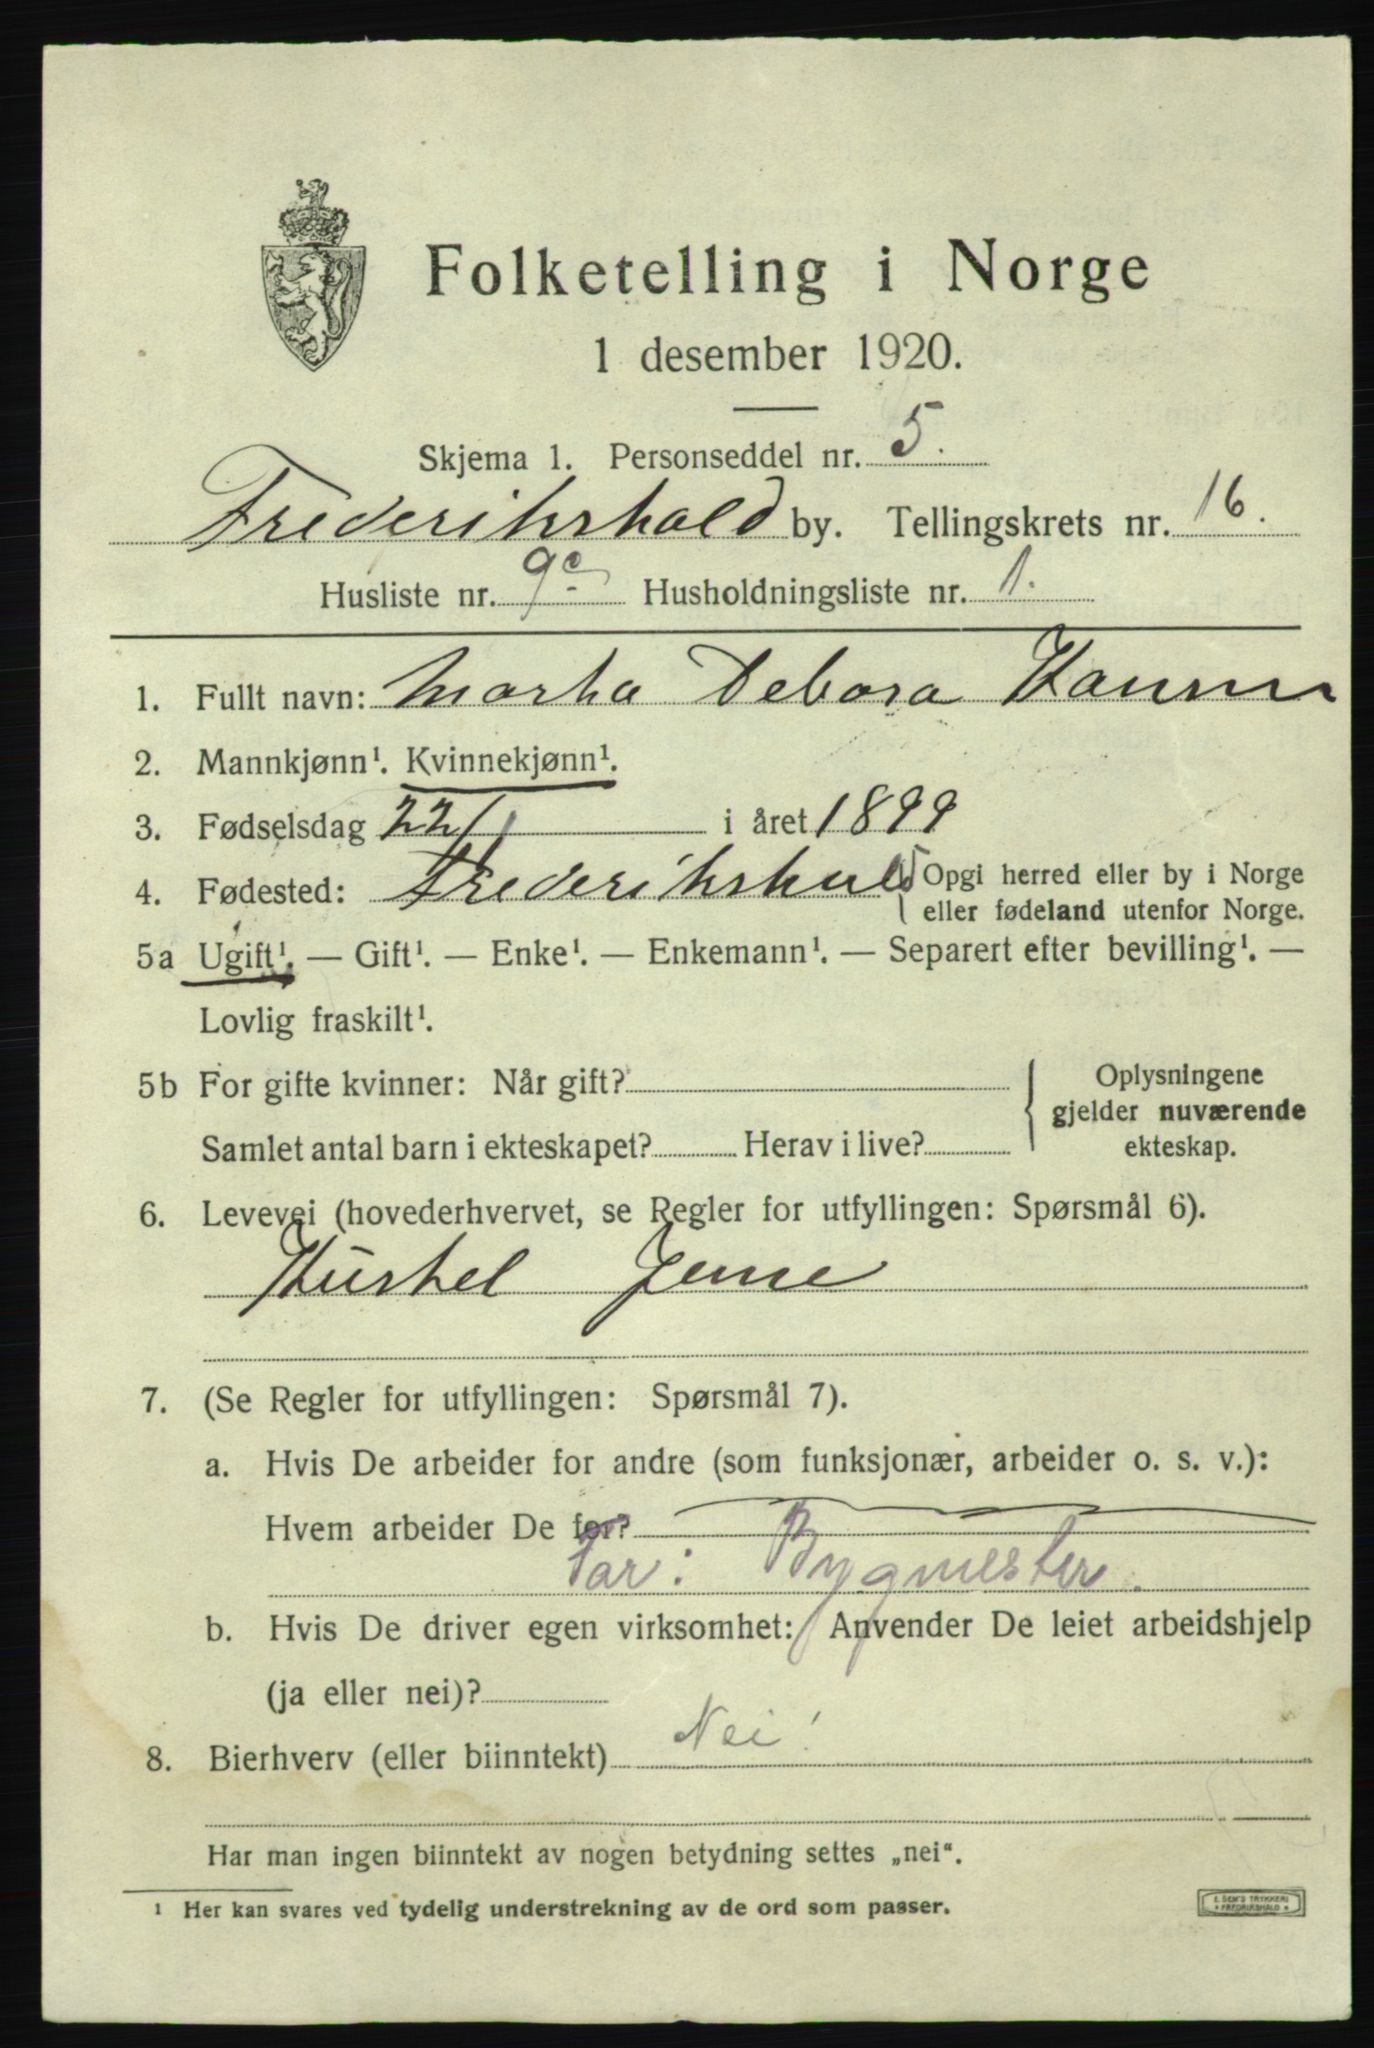 Folketelling i Norge
1 desember 1920.
Skjema 1. Personseddel nr. 5.
Frederikshald by. Tellingskrets nr. 16.
Husliste nr. 9c Husholdningsliste nr. 1.
1. Fullt navn: Marha Debora Hansen
2. Mannkjønn¹. Kvinnekjønn¹.
3. Fødselsdag 22/1 i året 1899
4. Fødested: Frederikshald Opgi herred eller by i Norge
eller fødeland utenfor Norge.
5a Ugift¹. — Gift¹. — Enke¹. — Enkemann¹. — Separert efter bevilling¹. —
Lovlig fraskilt¹.
5b For gifte kvinner: Når gift?
Samlet antal barn i ekteskapet? Herav i live?
Oplysningene
gjelder nuværende
ekteskap.
6. Levevei (hovederhvervet, se Regler for utfyllingen: Spørsmål 6).
Hushel Jerne
7. (Se Regler for utfyllingen: Spørsmål 7).
a. Hvis De arbeider for andre (som funksjonær, arbeider o. s. v.):
Hvem arbeider De for?
Far: Bygmester.
b. Hvis De driver egen virksomhet: Anvender De leiet arbeidshjelp
(ja eller nei)?
8. Bierhverv (eller biinntekt) Nei!
Har man ingen biinntekt av nogen betydning settes „nei“.
¹ Her kan svares ved tydelig understrekning av de ord som passer.
E. SEM'S TRYKKERI
FREDRIKSHALD